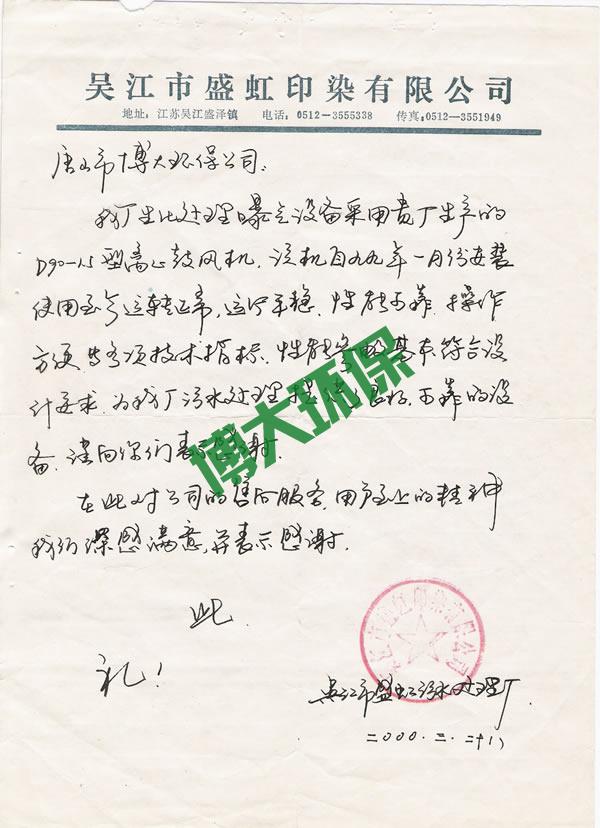 吴江市盛虹印染有限公司
地址：江苏吴江盛泽镇 电话：0512-3555338 传真：0512—3551949
唐山市博大环保公司：
我厂生化处理曝气设备采用贵厂生产的
D90-1.5型离心鼓风机，该机自九九年一月份安装
使用至今运转正常，运行平稳，性能可靠，操作
方便，其各项技术指标，性能参数基本符合设
计要求，为我厂污水处理提供了良好、可靠的设
备，谨向你们表示感谢。
在此对公司的售后服务，用户至上的精神
我们深感满意，并表示感谢。
此
礼！
吴江市盛虹污水处理厂
二000.三.二十八
博大环保
吴江市盛虹印染有限公司